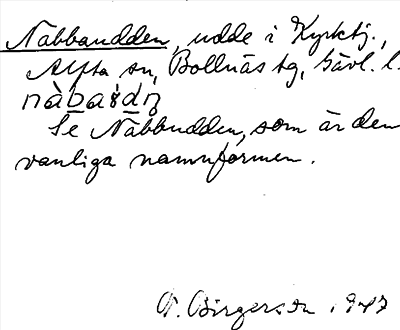 Näbbaudden, udde i Kyrktj.,
Alfta sn, Bollnäs tg, Gävl. l.
Se Näbbudden, som är den
vanliga namnformen.
P. Birgerson 1947